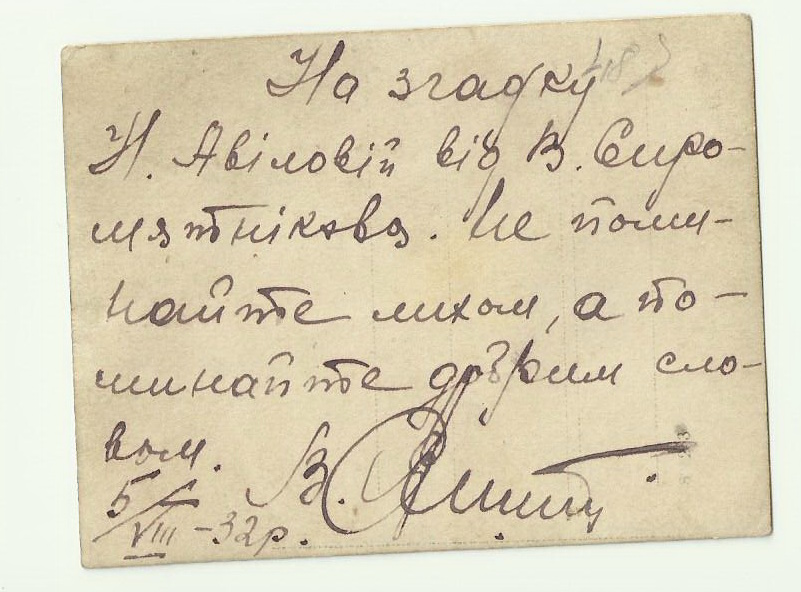 На згадку
Н. Авіловій від В. Сиро-
мятнікова. Не поми-
найте лихом, а по-
минайте добрим сло-
вом. В.
5/VIII -32р.